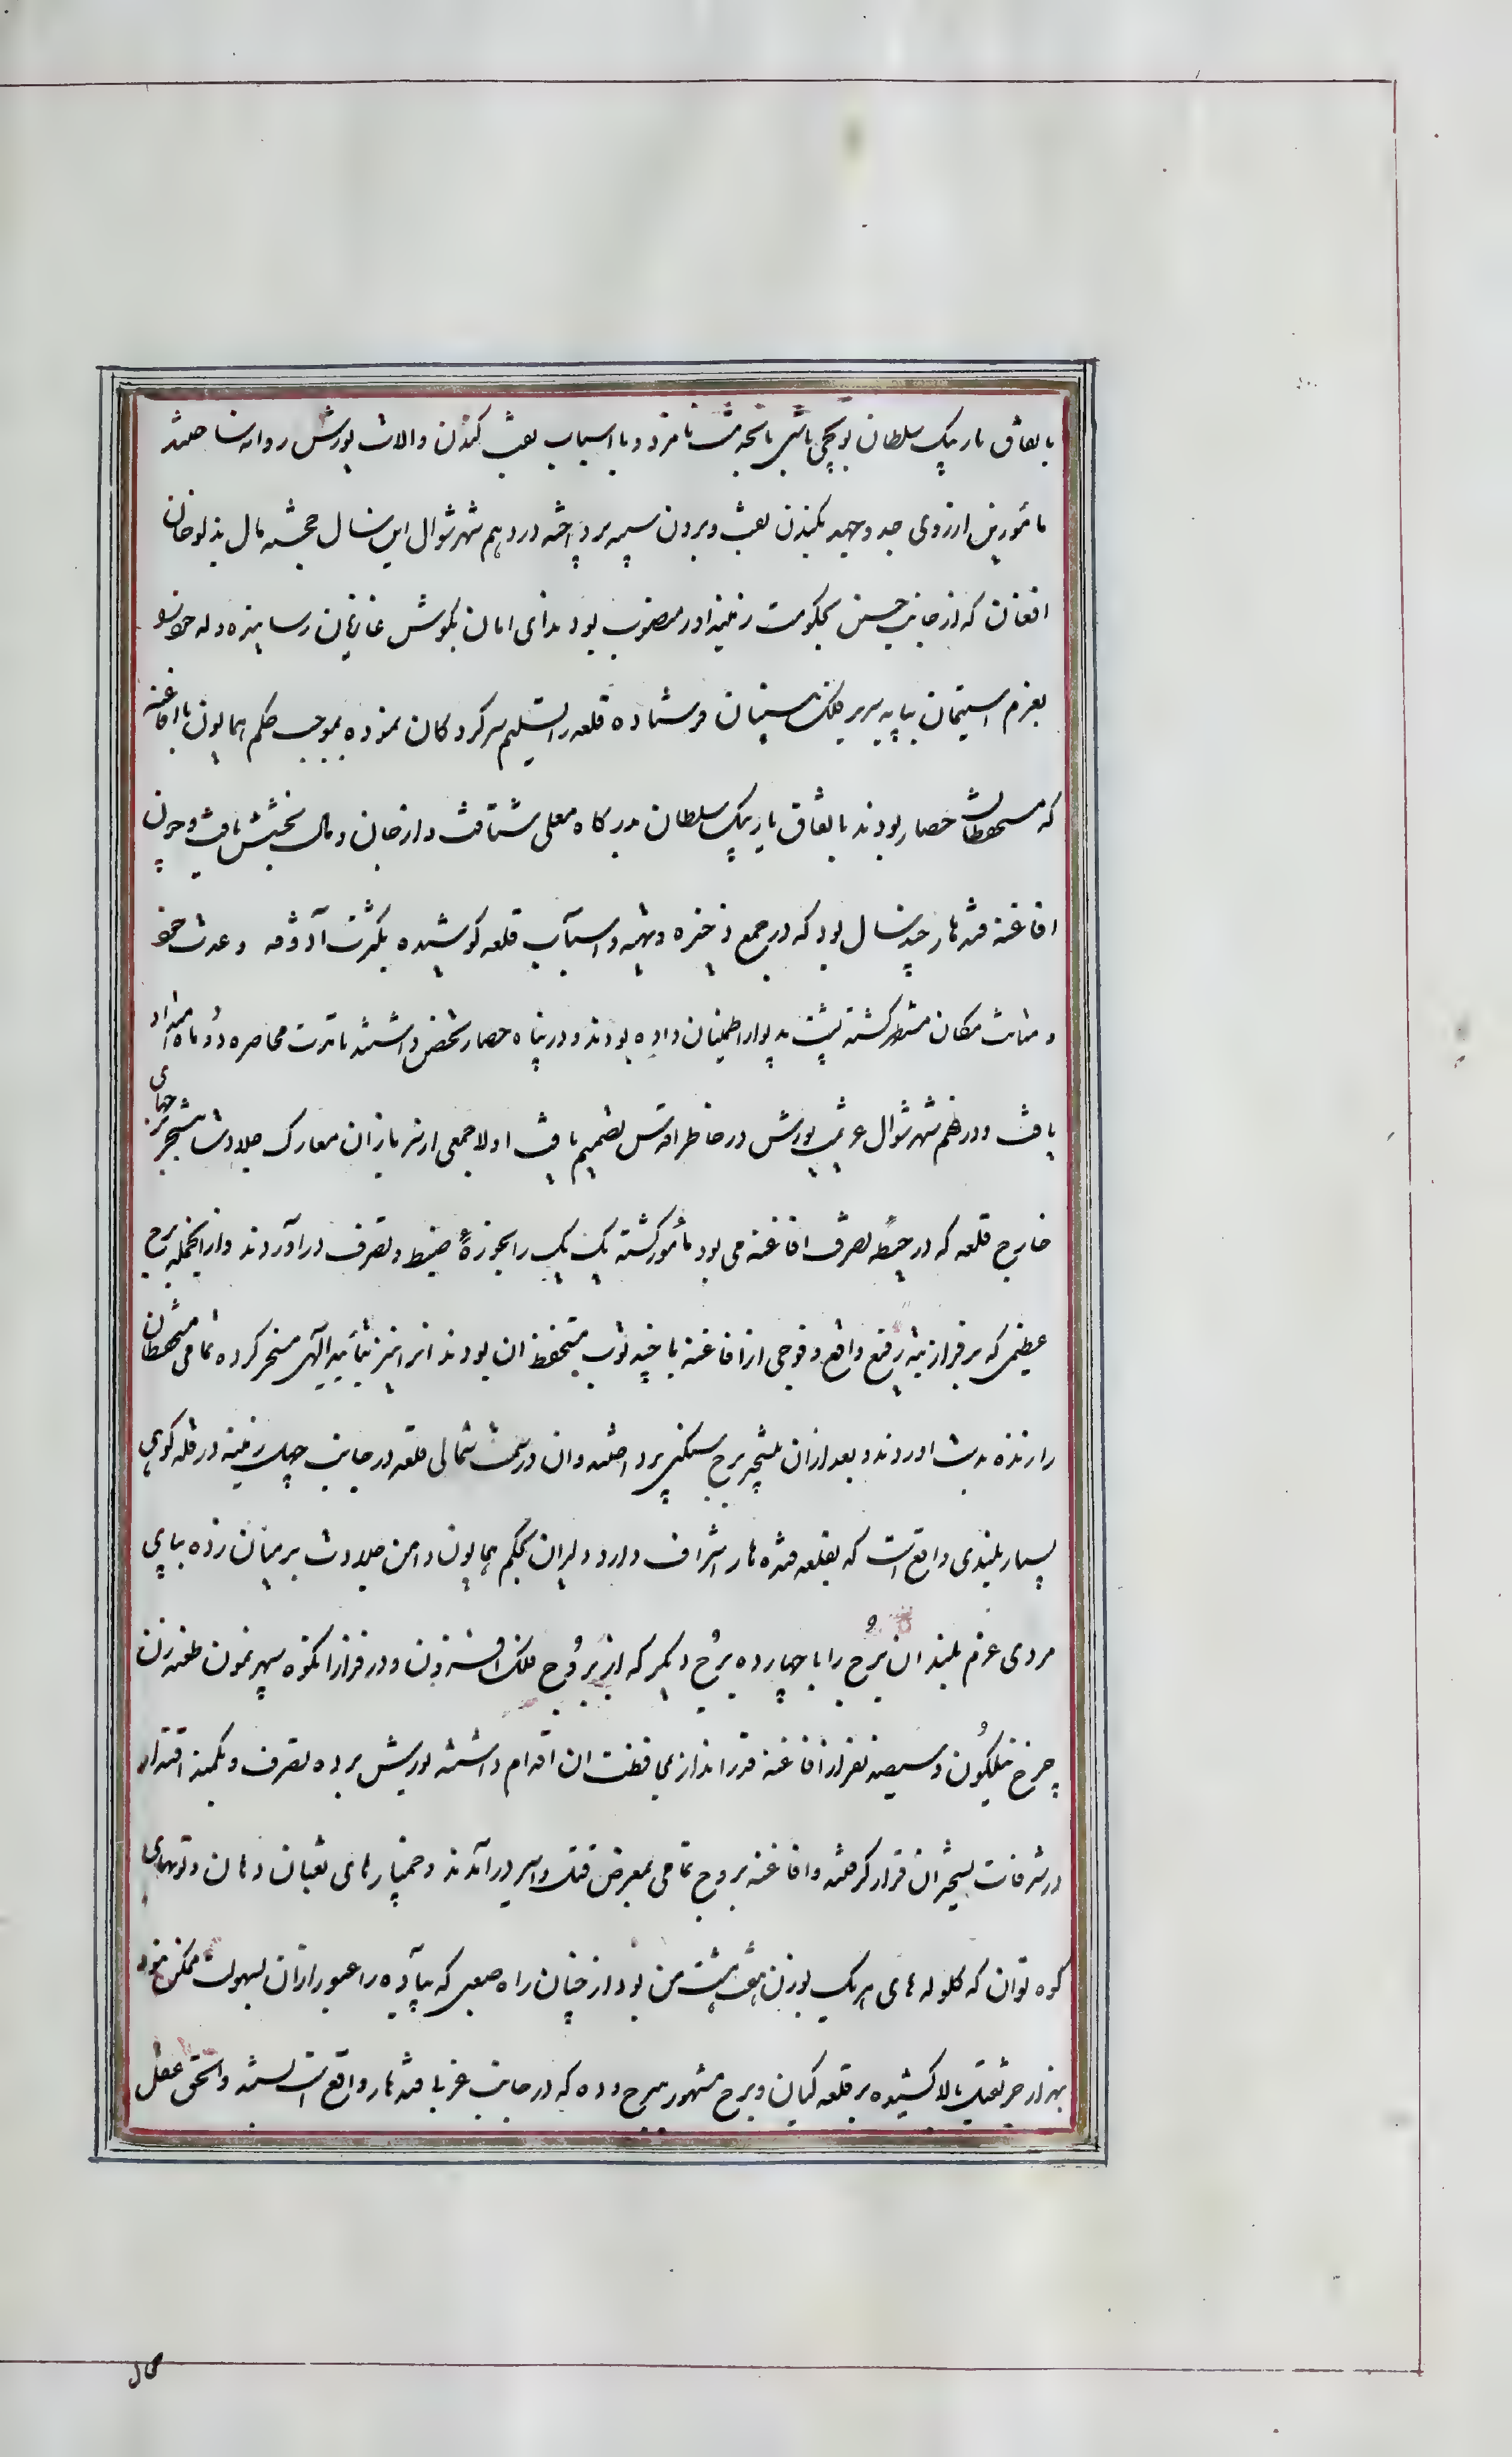 باتفاق یاربیک سلطان توپچی باشی بانخدمت نامزد و با اسباب نقب کندن و الات یورش روانه ساختند
مأمورین ارزوی جد و جهد بکندن نقب و بردن سیبه پرداخته در دهم شهر شوال این سال خجسته مال یدلو خان
افغان که از جانب حسین بحکومت زمیندادر منصوب بود ندای امان بگوش غازیان رسانیده و له خود
بعزم استیمان بپایه سریر فلک سیتان فرستاده قلعه را تسلیم سرکردکان نموده بموجب حکم همایون با افاغنه
که مستحفظان حصار بودند باتفاق یاربیک سلطان بدرکاه معلی شتافت و از جان و مال بخشش یافت و چون
افاغنه قندهار چند سال بود که در جمع ذخیره و تهیه و اسباب قلعه کوشیده بکثرت آذوقه و عدت خود
و متانت مکان مستظهر کشته پشت بدیوار اطمینان داده بودند و در پناه حصار تحصن داشتند تا مدت محاصره دو ماه امتداد
یافت و در دهم شهر شوال عزیمت یورش در خاطر اقدس تصمیم یافت اولا جمعی از سربازان معارک جلادت بتسخیر برجهای
خارج قلعه که در حیطه تصرف افاغنه می بود مأمور کشته یک یک را بحوزهٔ ضبط و تصرف دراوردند و از انجمله برج
عظیمی که بر فراز تپه رفیع واقع و فوجی از افاغنه با چند توپ مستحفظ ان بودند انرا نیز بتأئید الهی مسخر کرده تمامی مستحفظان
را زنده بدست اوردند و بعد از ان بتسخیر برج سنکی پرداختند و ان در سمت شمالی قلعه در جانب چهل زینه در قله کوهی
بسیار بلندی واقع است که بقلعه قندهار اشراف دارد دلیران بحکم همایون دامن جلادت بر میان زده بپای
مردی عزم بلند ان برج را با چهارده برج دیکر که از بروج فلک افزون و در فراز انکوه سپهر نمون طعنه زن
چرخ نیلکون و سیصد نفر از افاغنه قدرانداز بمحافظت ان اقدام داشتند یورش برده تصرف و بکمند اقتدار
در شرفات تسخیر ان قرار کرفتند و افاغنه بروج تمامی بمعرض قتل و اسر درآمدند و خمپارهای ثعبان دهان و توپهای
کوه توان که کلوله های هریک بوزن هفت هشت من بود از چنان راه صعبی که پیاده را عبور ازان بسهولت ممکن نبود
بهزار جر ثقیل بالا کشیده بر قلعه کیان و برج مشهور ببرج دده که در جانب غربی قندهار واقع است بستند و الحق عقل